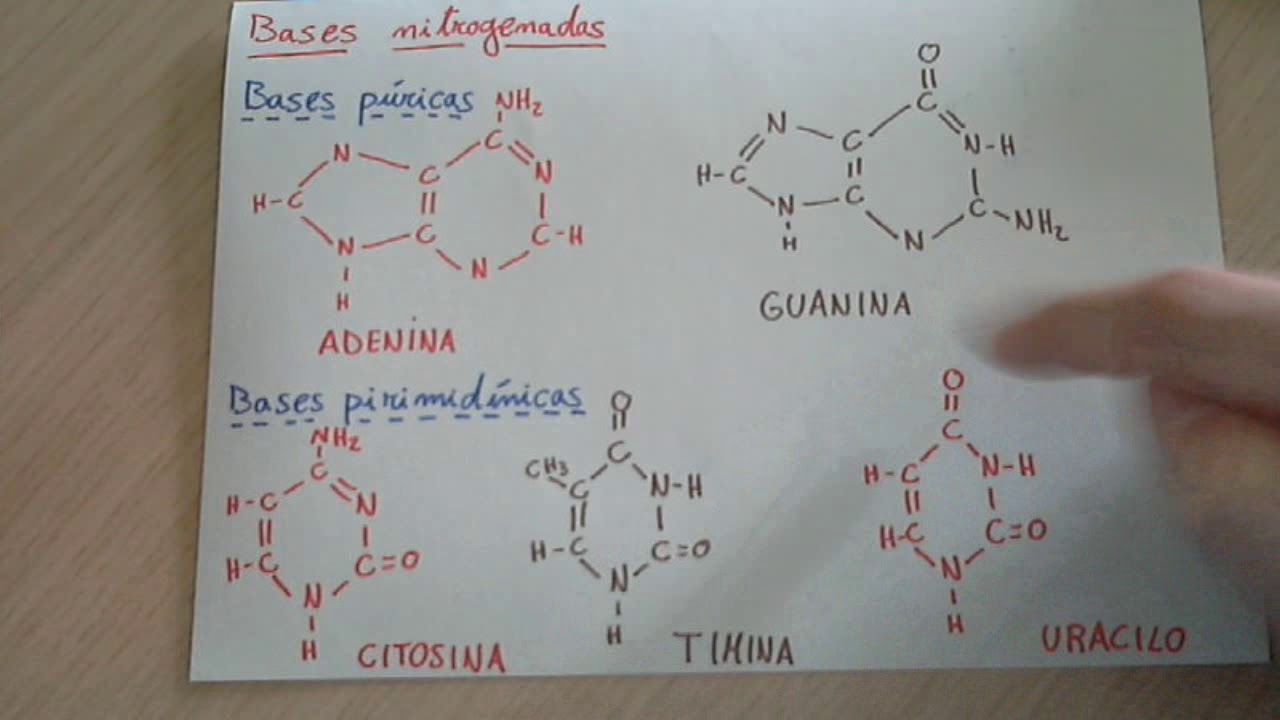 Bases nitrogenadas
Bases púricas
NH₂
N
C
N
H-C
C
C
C-H
N
N
H
ADENINA
O
C
N
C
N-H
H-C
C
N
C-NH₂
N
H
GUANINA
Bases pirimidínicas
NH₂
C
H-C
N
H-C
C=O
N
H
CITOSINA
O
C
CH₃
C
N-H
H-C
C=O
N
H
TIMINA
O
C
H-C
N-H
H-C
C=O
N
H
URACILO